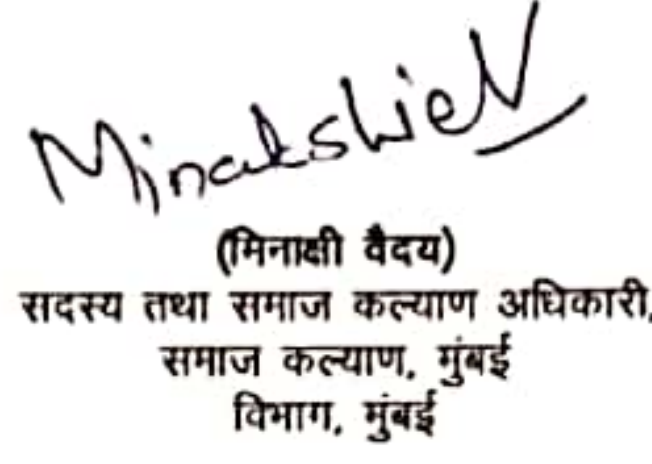 Minakshi V
(मिनाक्षी वैदय)
सदस्य तथा समाज कल्याण अधिकारी,
समाज कल्याण, मुंबई
विभाग, मुंबई